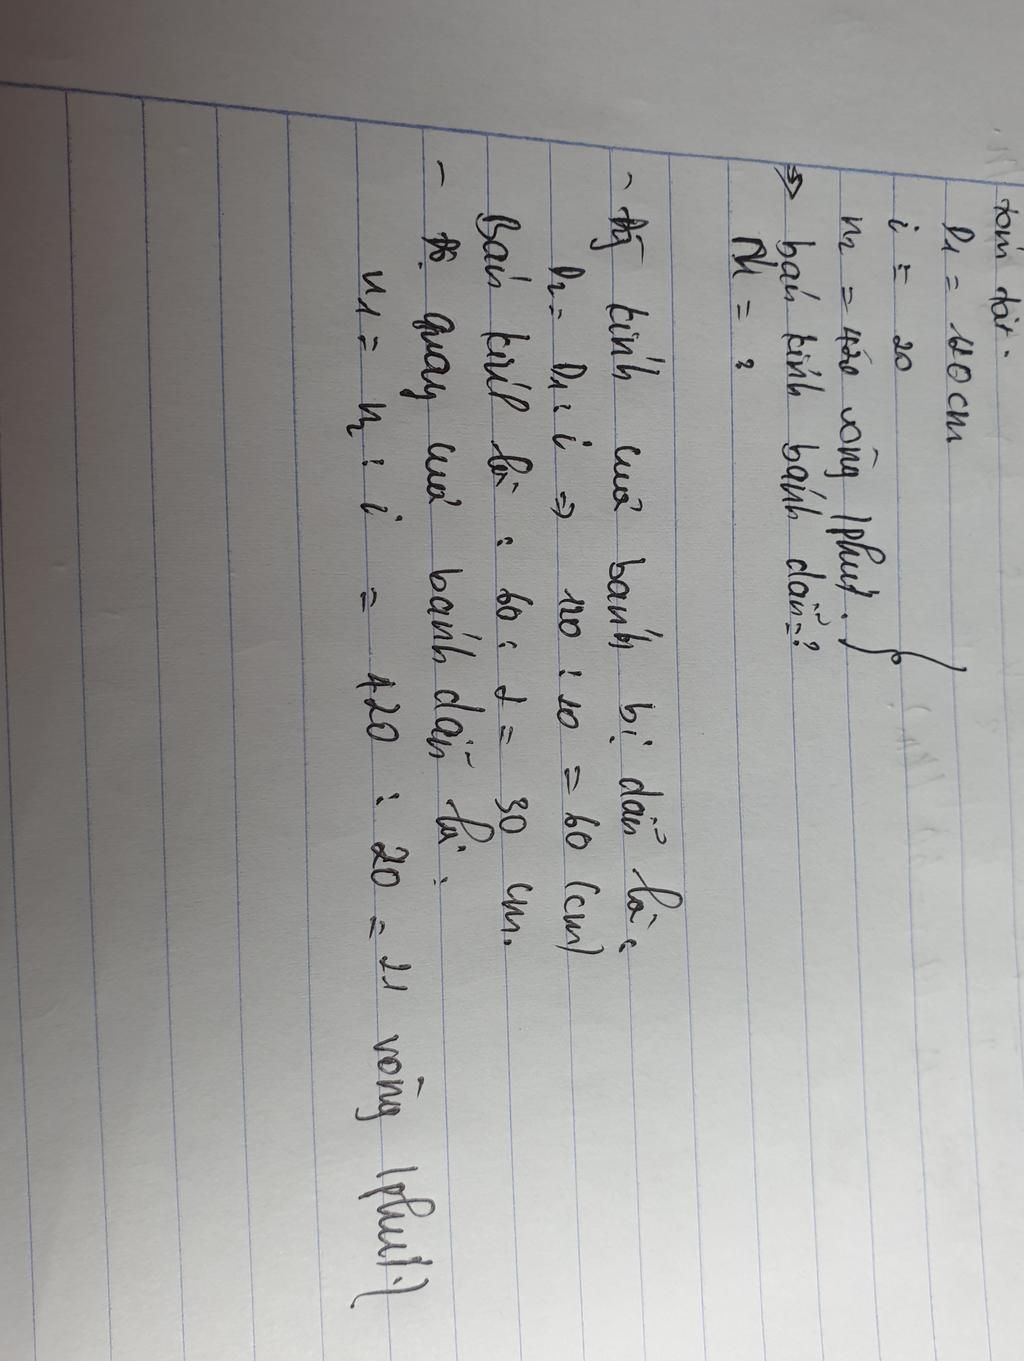 tóm tắt.
D1 = 120 cm
i = 20
n2 = 420 vòng / phút.
=> bán kính bánh dẫn = ?
n1 = ?
- Đg kính của bánh bị dẫn là:
D2 = D1 : i => 120 : 20 = 60 (cm)
Bán kính là : 60 : 2 = 30 cm.
- độ quay của bánh dẫn là :
n1 = n2 : i = 420 : 20 = 21 vòng / phút.)